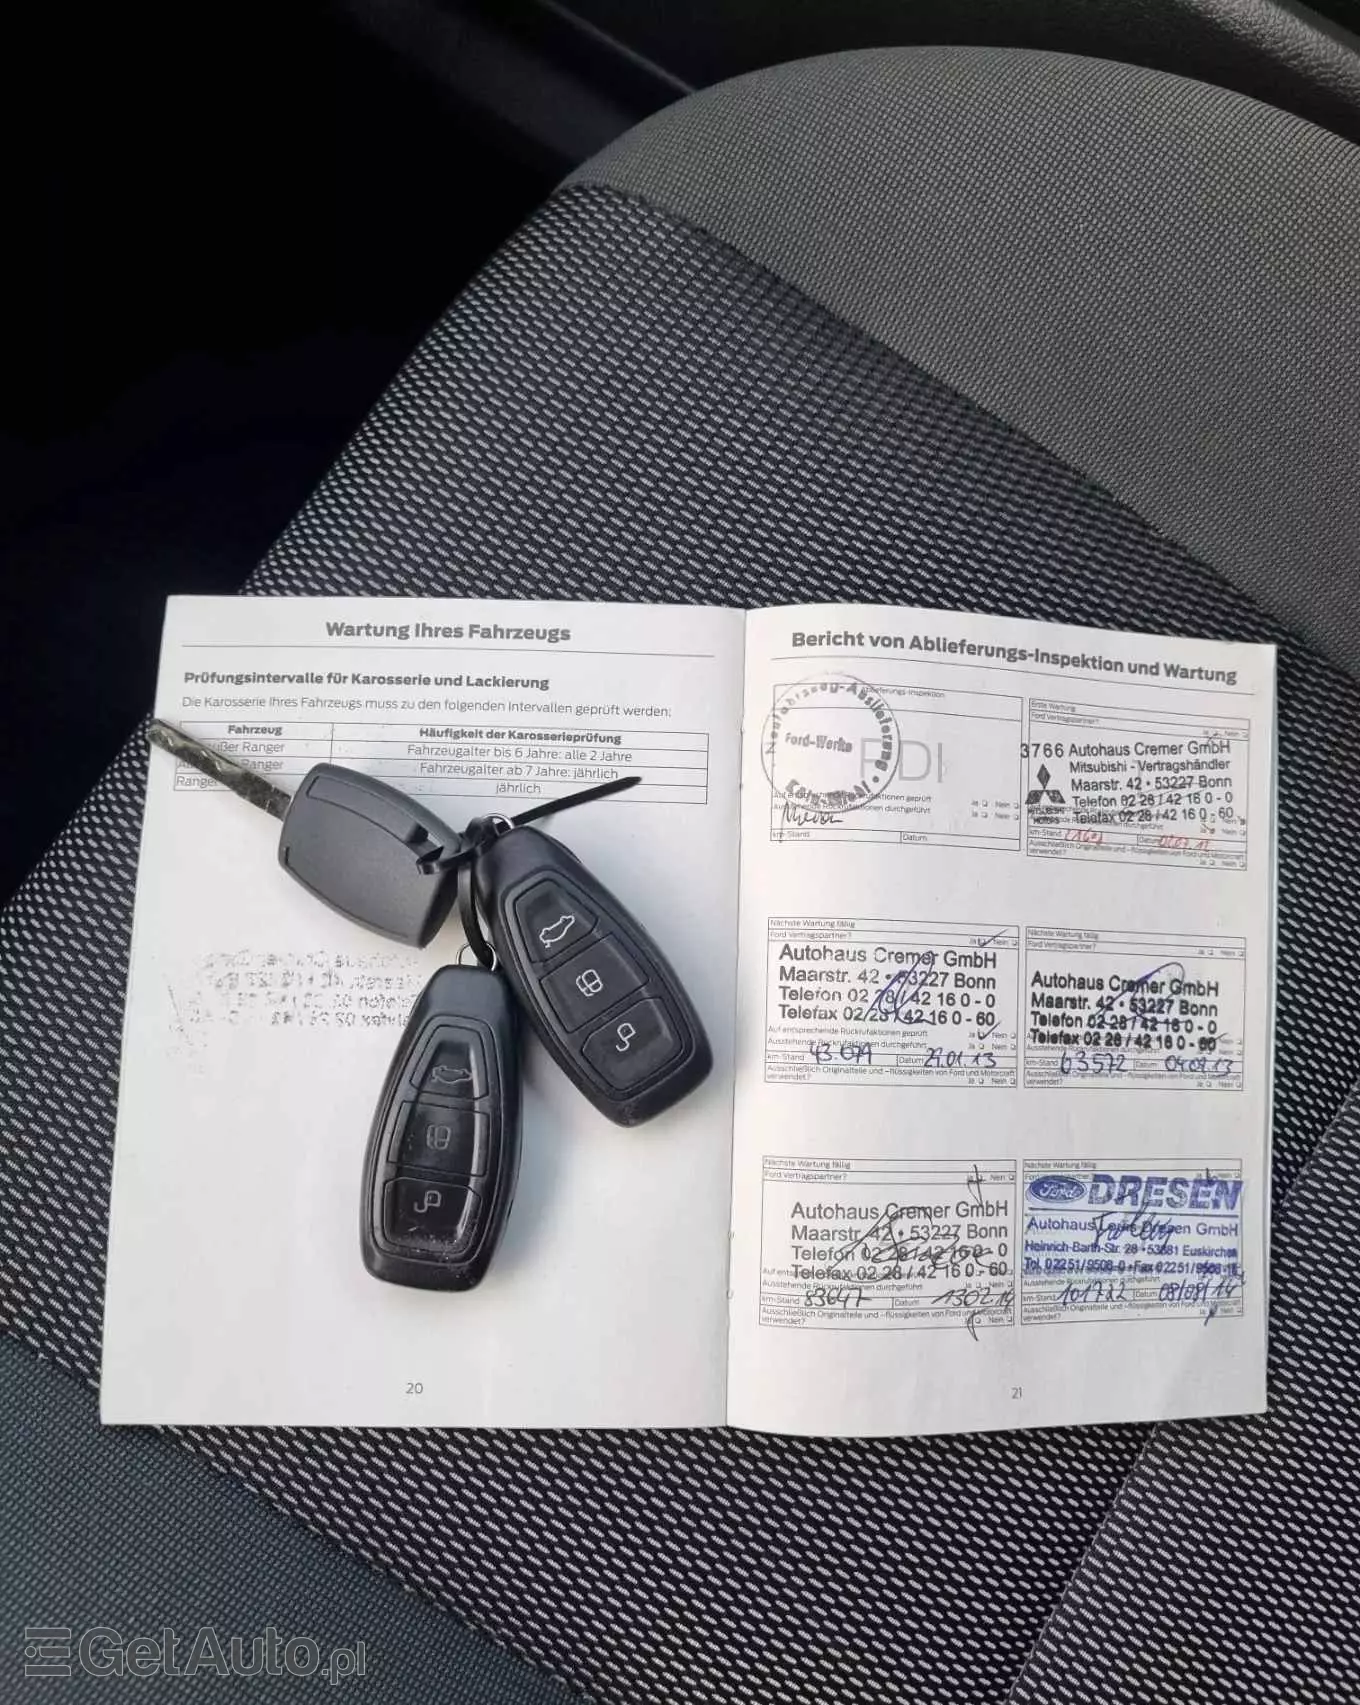 Wartung Ihres Fahrzeugs
Prüfungsintervalle für Karosserie und Lackierung
Die Karosserie Ihres Fahrzeugs muss zu den folgenden Intervallen geprüft werden:
Fahrzeug Häufigkeit der Karosserieprüfung
außer Ranger Fahrzeugalter bis 6 Jahre: alle 2 Jahre
Ranger Fahrzeugalter ab 7 Jahre: jährlich
Ranger jährlich
20
Bericht von Ablieferungs-Inspektion und Wartung
Ablieferungs-Inspektion
Neufahrzeug-Ablieferung
Ford-Werke
PDI
Ausstehende Rückrufaktionen durchgeführt Ja Nein
km-Stand Datum
Erste Wartung
Ford Vertragspartner?
3766 Autohaus Cremer GmbH
Mitsubishi - Vertragshändler
Maarstr. 42 • 53227 Bonn
Telefon 02 28 / 42 16 0 - 0
Telefax 02 28 / 42 16 0 - 60
km-Stand Datum
Ausschließlich Originalteile und -flüssigkeiten von Ford und Motorcraft
verwendet? Ja Nein
Nächste Wartung fällig
Ford Vertragspartner? Ja Nein
Autohaus Cremer GmbH
Maarstr. 42 • 53227 Bonn
Telefon 02 28 / 42 16 0 - 0
Telefax 02 28 / 42 16 0 - 60
Auf entsprechende Rückrufaktionen geprüft Ja Nein
Ausstehende Rückrufaktionen durchgeführt Ja Nein
km-Stand 43.079 Datum 29.01.13
Ausschließlich Originalteile und -flüssigkeiten von Ford und Motorcraft
verwendet? Ja Nein
Nächste Wartung fällig
Ford Vertragspartner? Ja Nein
Autohaus Cremer GmbH
Maarstr. 42 • 53227 Bonn
Telefon 02 28 / 42 16 0 - 0
Telefax 02 28 / 42 16 0 - 60
Ausstehende Rückrufaktionen durchgeführt Ja Nein
km-Stand 63572 Datum
Ausschließlich Originalteile und -flüssigkeiten von Ford und Motorcraft
verwendet? Ja Nein
Nächste Wartung fällig
Ford Vertragspartner? Ja Nein
Autohaus Cremer GmbH
Maarstr. 42 • 53227 Bonn
Telefon 02 28 / 42 16 0 - 0
Telefax 02 28 / 42 16 0 - 60
Ausstehende Rückrufaktionen durchgeführt Ja Nein
km-Stand 83647 Datum 13.02.14
Ausschließlich Originalteile und -flüssigkeiten von Ford und Motorcraft
verwendet? Ja Nein
Nächste Wartung fällig
Ford DRESEN
Autohaus Louis Dresen GmbH
Heinrich-Barth-Str. 28 • 53881 Euskirchen
Tel. 02251/9508-0 • Fax 02251/9508-
Ausstehende Rückrufaktionen durchgeführt
km-Stand 101722 Datum 08/08/14
Ausschließlich Originalteile und -flüssigkeiten von Ford und Motorcraft
verwendet? Ja Nein
21
GetAuto.pl